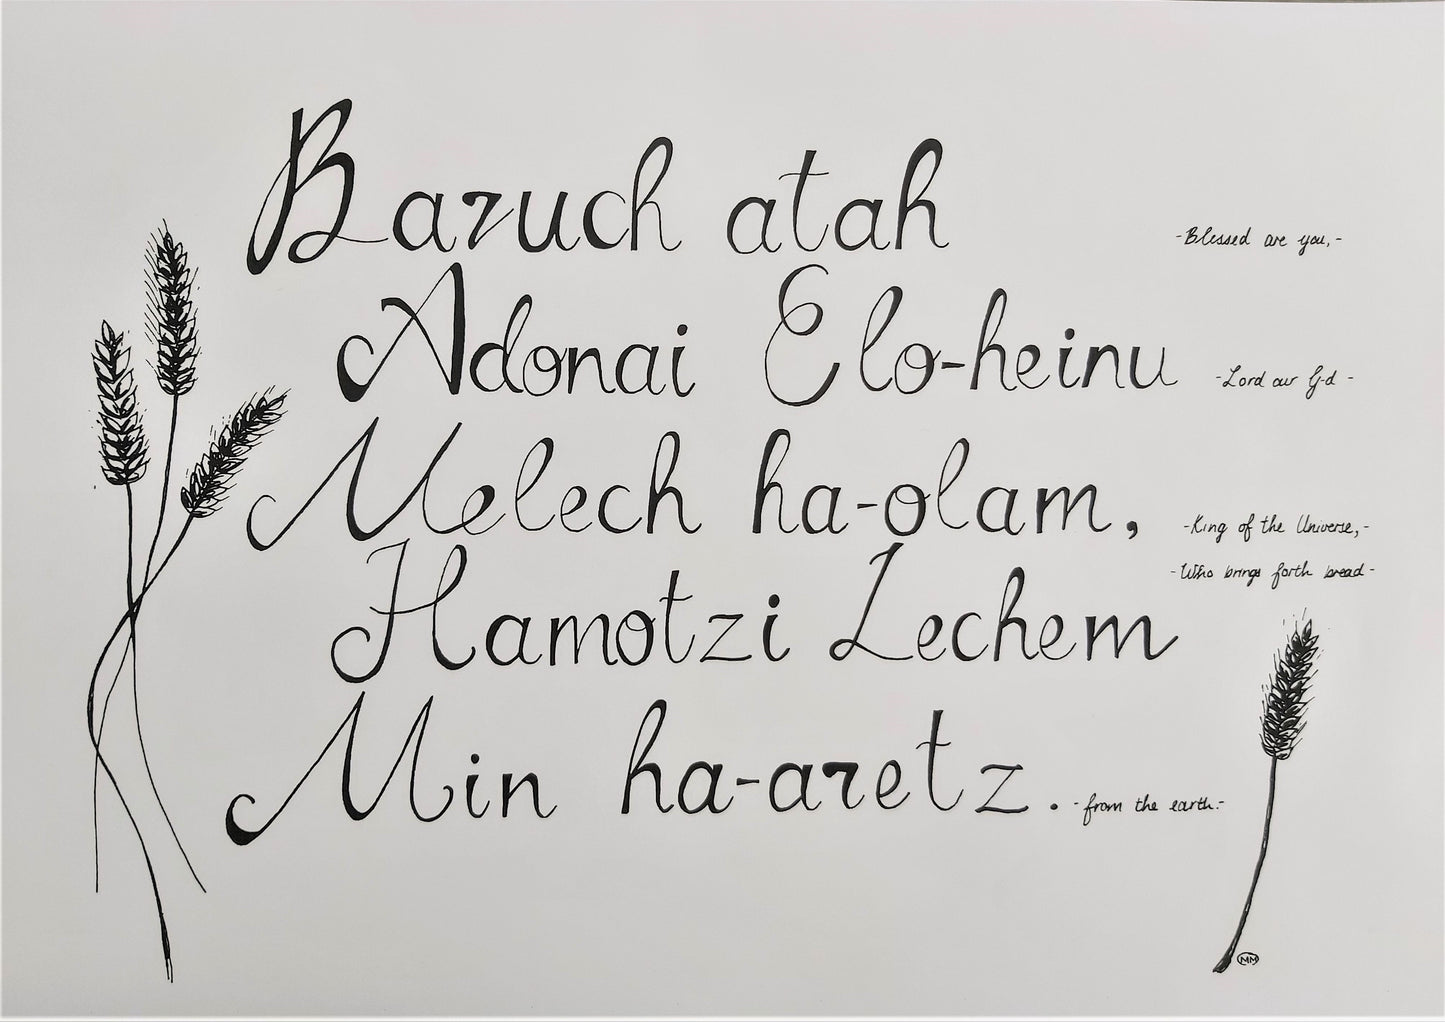 Baruch atah
-Blessed are you,-
Adonai Elo-heinu
-Lord our G-d-
Melech ha-olam,
-King of the Universe,-
-Who brings forth bread-
Hamotzi Lechem
Min ha-aretz.
-from the earth.-
MM